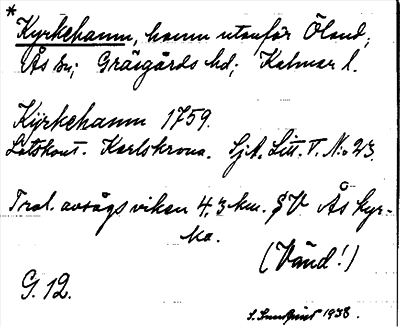 *
Kyrkehamn, hamn utanför Öland;
Ås sn; Gräsgårds hd; Kalmar l.
Kyrkehamn 1759.
Lotskont. Karlskrona. Sjk. Litt. V. No 23.
Trol. avses viken 4,3 km. SV Ås kyr-
ka.
(Vänd!)
G. 12.
S. Sundquist 1938.